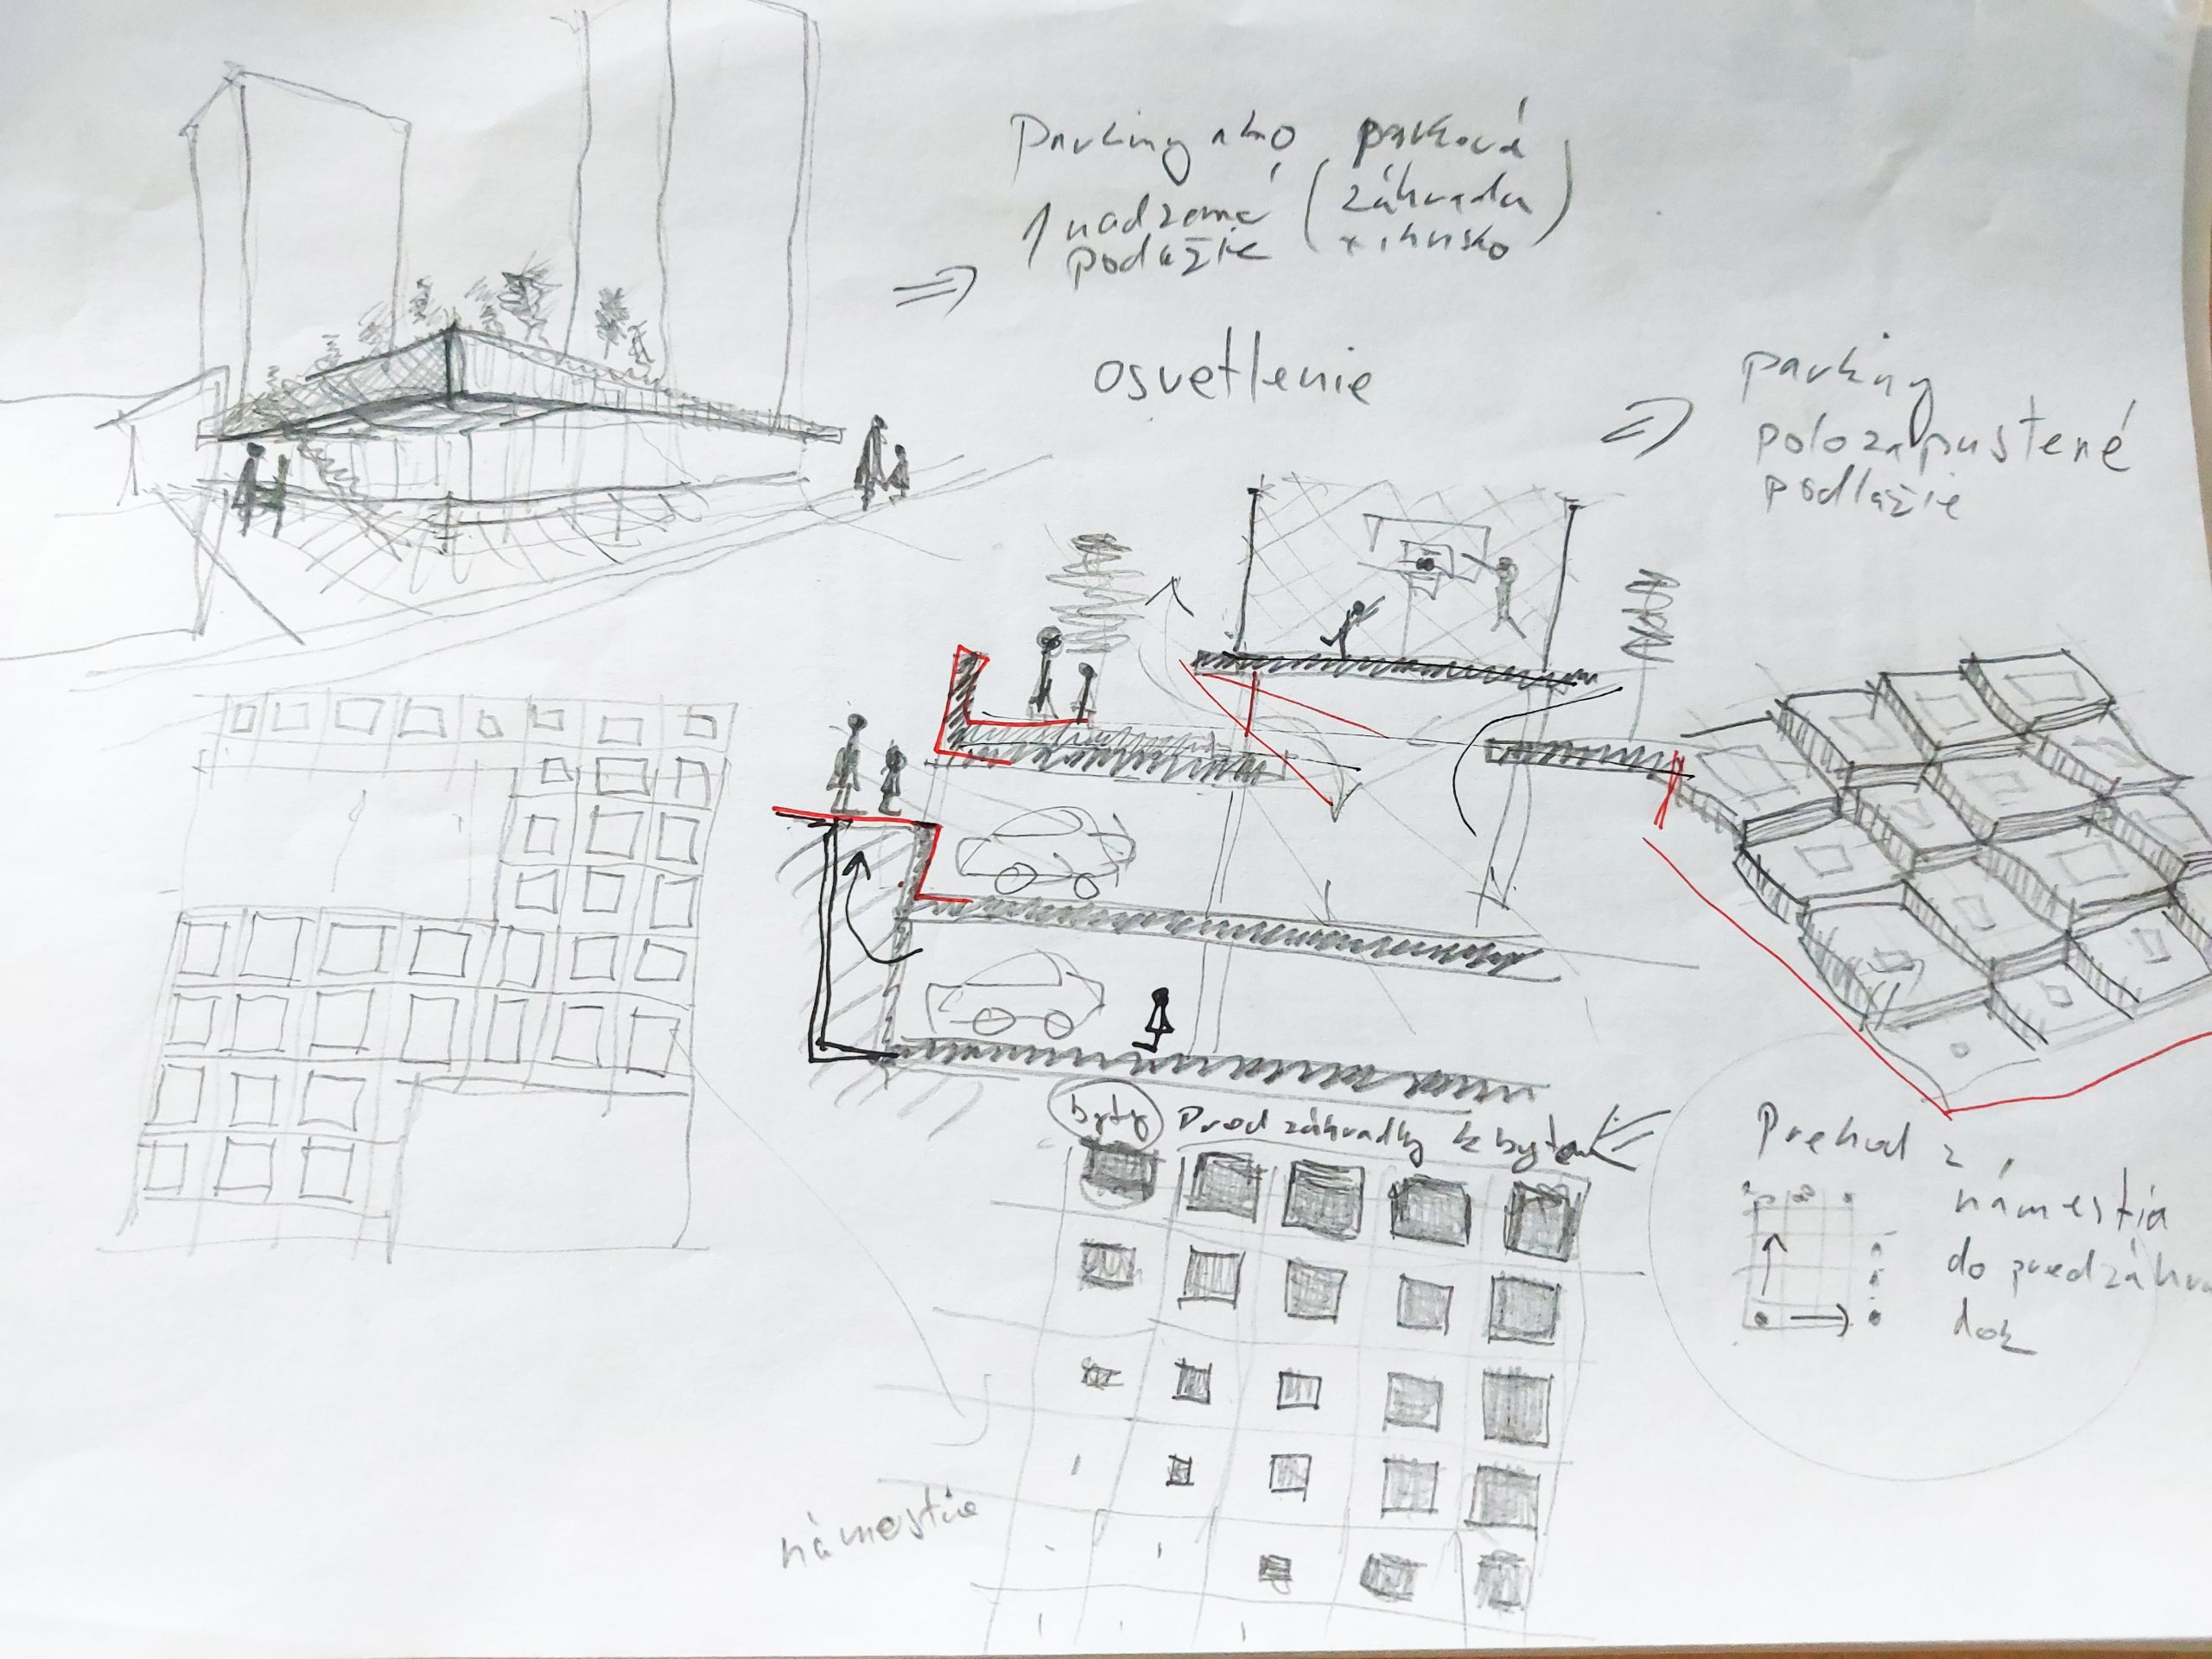 Parking ako parková
1 nadzemné (záhrada)
podlažie + ihrisko
osvetlenie
parking
polozapustené
podlažie
byty Predzáhradky k bytom
Prechod z
námestia
do predzáhra
dok
námestie